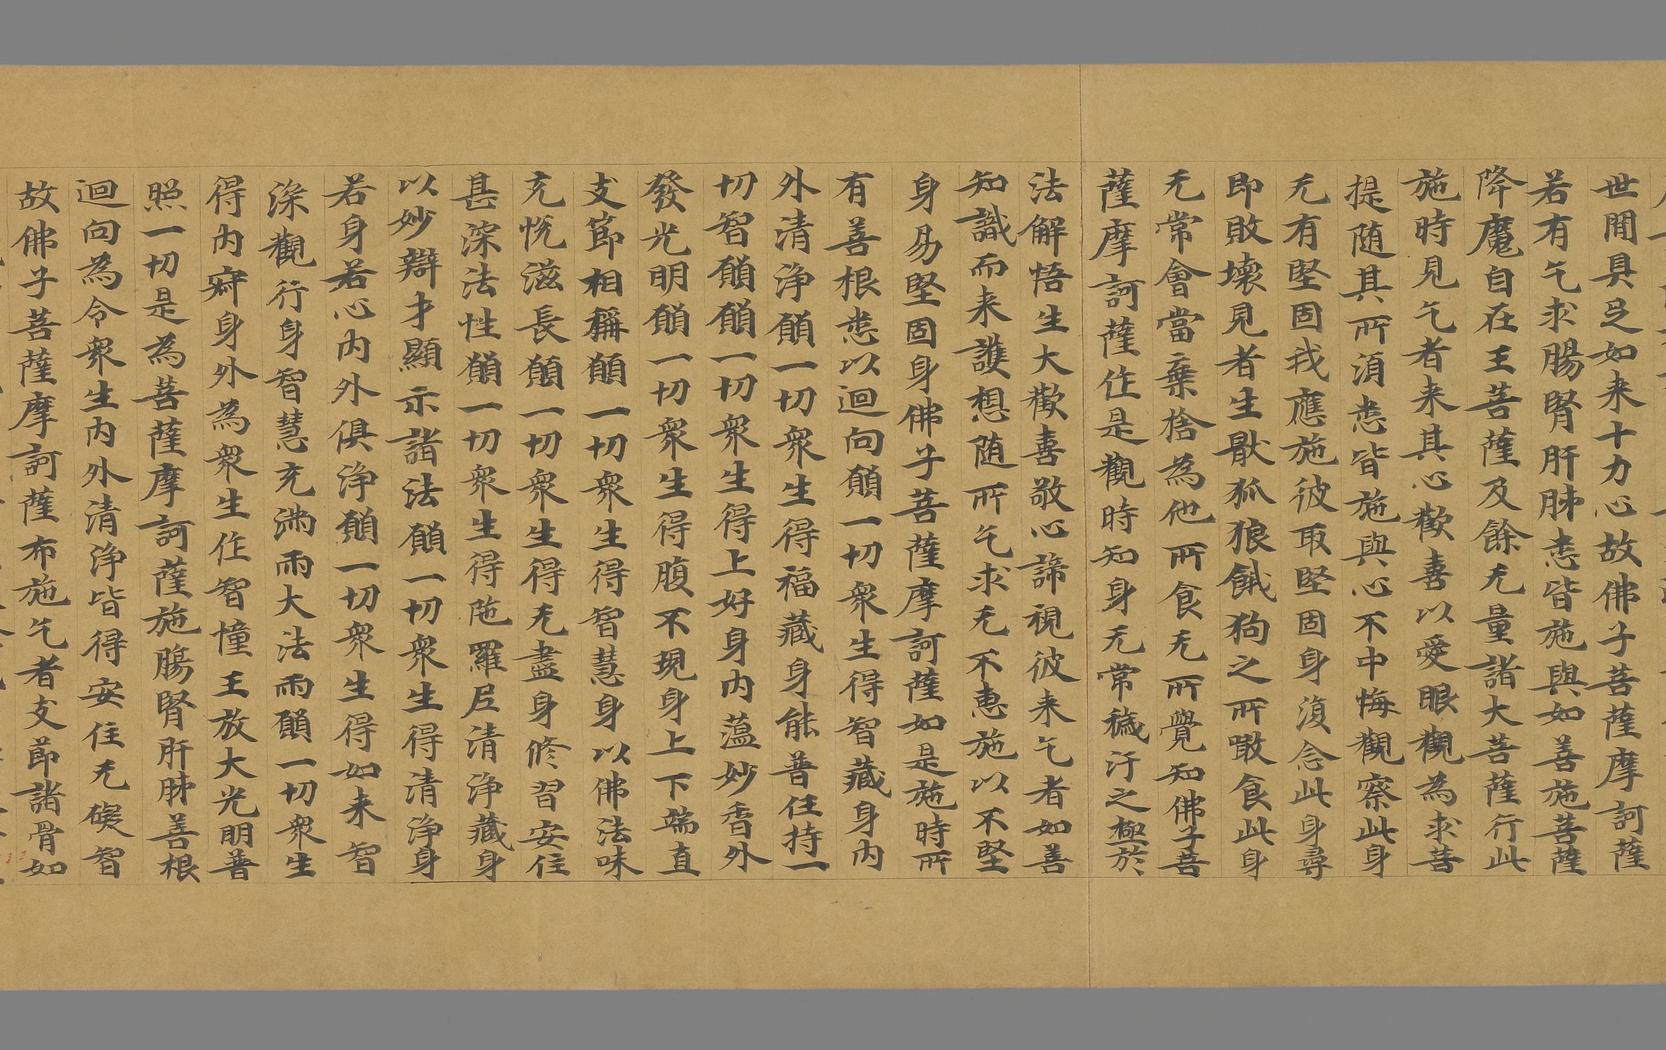 世間具足如来十力心故佛子菩薩摩訶薩
若有乞求腸腎肝肺悉皆施與如善施菩薩
降魔自在王菩薩及餘无量諸大菩薩行此
施時見乞者来其心歡喜以愛眼觀為求菩
提随其所湏悉皆施與心不中悔觀察此身
无有堅固我應施彼取堅固身復念此身尋
即敗壞見者生猒狐狼餓狗之所噉食此身
无常會當棄捨為他所食无所覺知佛子菩
薩摩訶薩作是觀時知身无常穢汙之極於
法解悟生大歡喜敬心諦視彼来乞者如善
知識而来護想随所乞求无不惠施以不堅
身易堅固身佛子菩薩摩訶薩如是施時所
有善根悉以迴向願一切衆生得智藏身内
外清浄願一切衆生得福藏身能普任持一
切智願願一切衆生得上好身内蕴妙香外
發光明願一切衆生得腹不現身上下端直
支節相稱願一切衆生得智慧身以佛法味
充悦滋長願一切衆生得无盡身修習安住
甚深法性願一切衆生得陁羅尼清浄藏身
以妙辯才顯示諸法願一切衆生得清浄身
若身若心内外俱浄願一切衆生得如来智
深觀行身智慧充滿雨大法雨願一切衆生
得内寂身外為衆生作智幢王放大光明普
照一切是為菩薩摩訶薩施腸腎肝肺善根
迴向為令衆生内外清浄皆得安住无礙智
故佛子菩薩摩訶薩布施乞者支節諸骨如